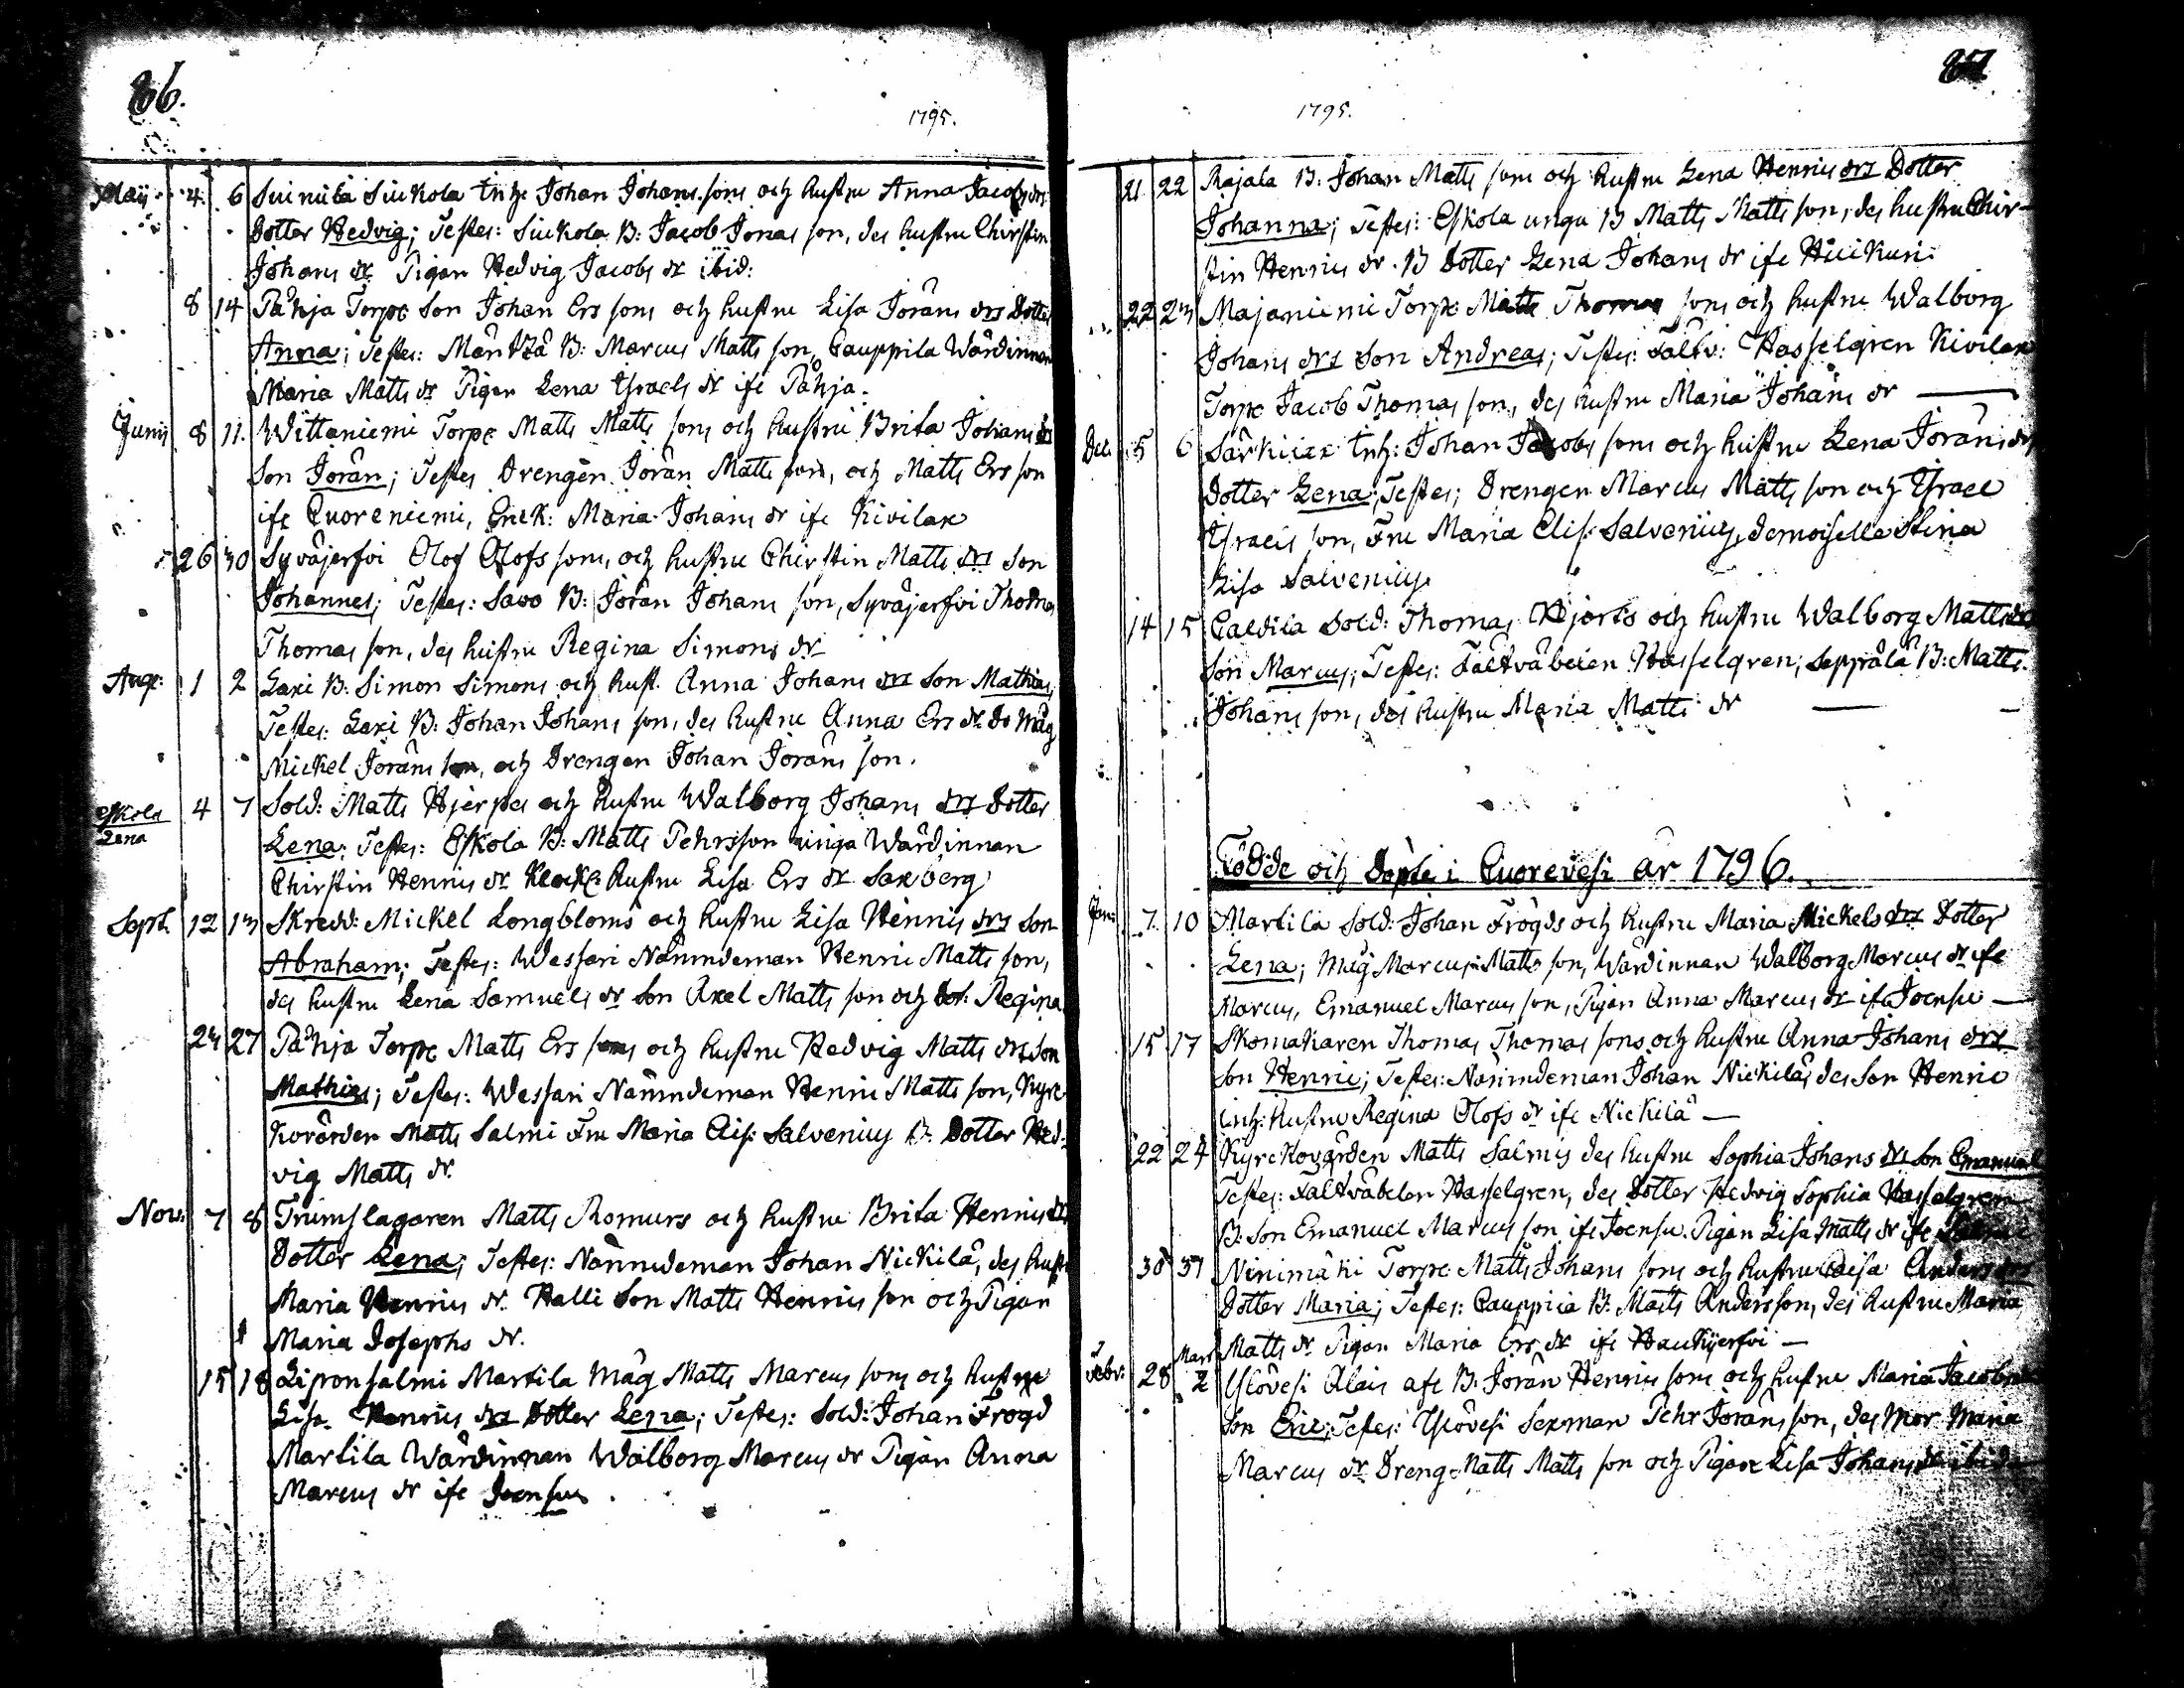 86.
1795.
Maij 4. 6 Suinula Siukola Inh: Johan Johans sons och hustru Anna Jacobs drs
Dotter Hedvig; Testes: Siukola B: Jacob Jonas son, des hustru Chirstin
Johans dr Pigan Hedvig Jacobs dr ibid:
8 14 Påhja Torpe Son Johan Ers sons och hustru Lisa Jörans drs Dotter
Anna; Testes: Mänttä B: Marcus Matts son, Cauppila Wärdinnan
Maria Matts dr Pigan Lena Israels dr ifr Påhja.
Junij 8 11. Wittaniemi Torpe Matts Matts sons och hustru Brita Johans drs
Son Jöran; Testes Drengen Jöran Matts son, och Matts Ers son
ifr Quoreniemi, Enck: Maria Johans dr ifr Kivilax
26 30 Syväjerfvi Olof Olofs sons, och hustru Chirstin Matts drs Son
Johannes; Testes: Savo B: Jöran Johans son, Syväjerfvi Thomas
Thomas son, des hustru Regina Simons dr
Aug: 1 2 Laxi B: Simon Simons och hust. Anna Johans drs Son Mathias,
Testes: Laxi B: Johan Johans son, des hustru Anna Ers dr Do Måg
Mickel Jörans son, och Drengen Johan Jörans son.
Eskola
Lena
4 7 Sold: Matts Hjerpes och hustru Walborg Johans drs Dotter
Lena; Testes: Eskola B: Matts Pehrsson unga Wärdinnan
Chirstin Henrics dr Klock: hustru Lisa Ers dr Saxberg
Sept. 12 13 Skredd: Mickel Longbloms och hustru Lisa Henrics drs Son
Abraham; Testes: Wessari Nämndeman Henric Matts son,
des hustru Lena Samuels dr Son Axel Matts son och Dot: Regina
24 27 Påhja Torpe Matts Ers sons och hustru Hedvig Matts drs Son
Mathias; Testes: Wessari Nämndeman Henric Matts son, Kyrc-
kovärden Matts Salmi Fru Maria Elis: Salvenius B: Dotter Hed-
vig Matts dr
Nov: 7 8 Trumslagaren Matts Romurs och hustru Brita Henrics drs
Dotter Lena; Testes: Nämndeman Johan Nickilä, des hustr
Maria Henrics dr Halli Son Matts Henrics son och Pigan
Maria Josephs dr.
15 18 Lipronsalmi Martila Måg Matts Marcus sons och hustru
Lisa Henrics drs Dotter Lena; Testes: Sold: Johan Frögd
Martila Wärdinnan Walborg Marcus dr Pigan Anna
Marcus dr ifr Joensuu.
87
1795.
21 22 Rajala B: Johan Matts sons och hustru Lena Henrics drs Dotter
Johanna; Testes: Eskola unga B Matts Matts son, des hustru Chir-
stin Henrics dr. B Dotter Lena Johans dr ifr Huikuri
22 23 Majaniemi Torpe Matts Thomas sons och hustru Walborg
Johans drs Son Andreas; Testes: Fältv: Hasselgren Kivilax
Torpe Jacob Thomas son, des hustru Maria Johans dr
Dec. 5 6 Särkilax Inh: Johan Jacobs sons och hustru Lena Jörans drs
Dotter Lena; Testes; Drengen Marcus Matts son och Israel
Israels son, Fru Maria Elis: Salvenius, Demoiselle Stina
Lisa Salvenius.
14 15 Caldila Sold: Thomas Hjorts och hustru Walborg Matts drs
Son Marcus; Testes: Fältväbelen Hasselgren; Seppälä B: Matts
Johans son, des hustru Maria Matts dr
Födde och Döpte i Quorevesi år 1796.
Jan: 7. 10 Martila Sold: Johan Frögds och hustru Maria Mickels drs Dotter
Lena; Måg Marcus Matts son, Wärdinnan Walborg Marcus dr ifr
Marcus, Emanuel Marcus son, Pigan Anna Marcus dr ifr Joensu
15 17 Skomakaren Thomas Thomas sons och hustru Anna Johans drs
Son Henric; Testes: Nämndeman Johan Nickilä, des Son Henric
Inh: hustru Regina Olofs dr ifr Nickilä
22 24 Kyrckovärden Matts Salmis des hustru Sophia Johans drs Son Emanuel
Testes: Fältväbelen Hasselgren, des Dotter Hedvig Sophia Hasselgren
B: Son Emanuel Marcus son ifr Joensu. Pigan Lisa Matts dr ifr Salmi
30 31 Niinimäki Torpe Matts Johans sons och hustru Caisa Anders drs
Dotter Maria; Testes: Cauppila B: Matts Andersson, des hustru Maria
Matts dr Pigan Maria Ers dr ifr Haukijerfvi
Febr: 28 Mart 2 Ylövesi Alais afl B: Jöran Henrics sons och hustru Maria Jacobs
Son Eric; Testes: Ylövesi Sexman Pehr Jörans son, des Mor Maria
Marcus dr Dreng Matts Matts son och Pigan Lisa Johans dr ibid